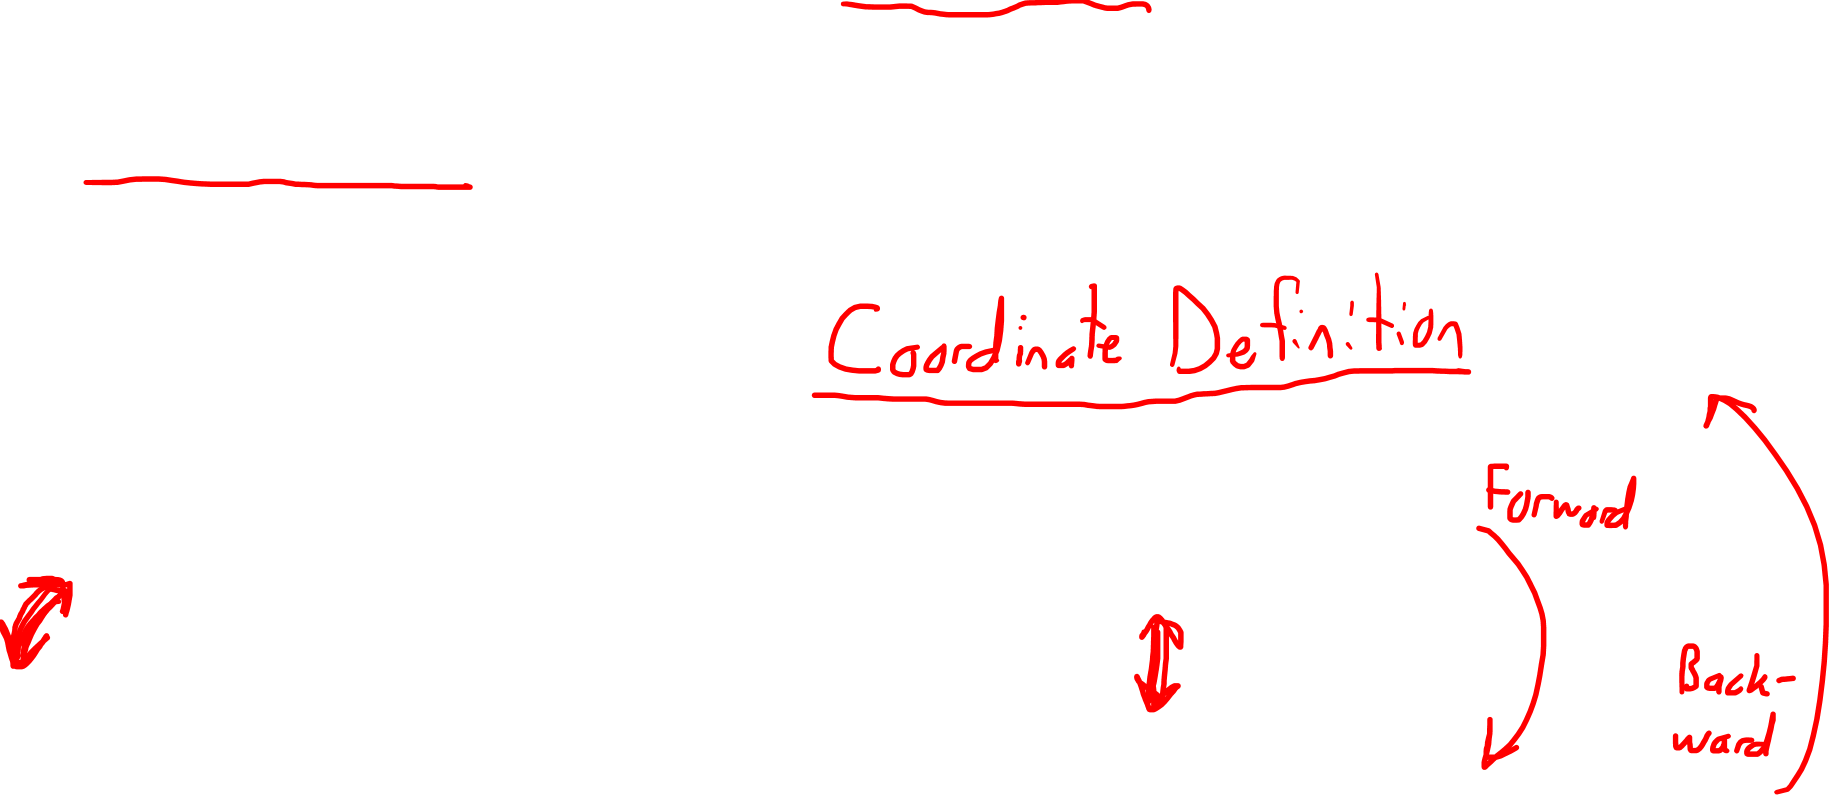 Coordinate Definition
Forward
Back-
ward